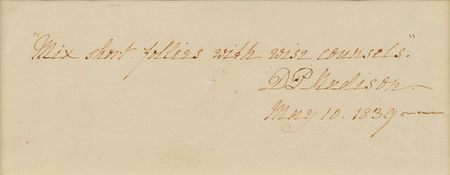 "Mix short follies with wise counsels."
D. P. Madison.
May 10. 1839